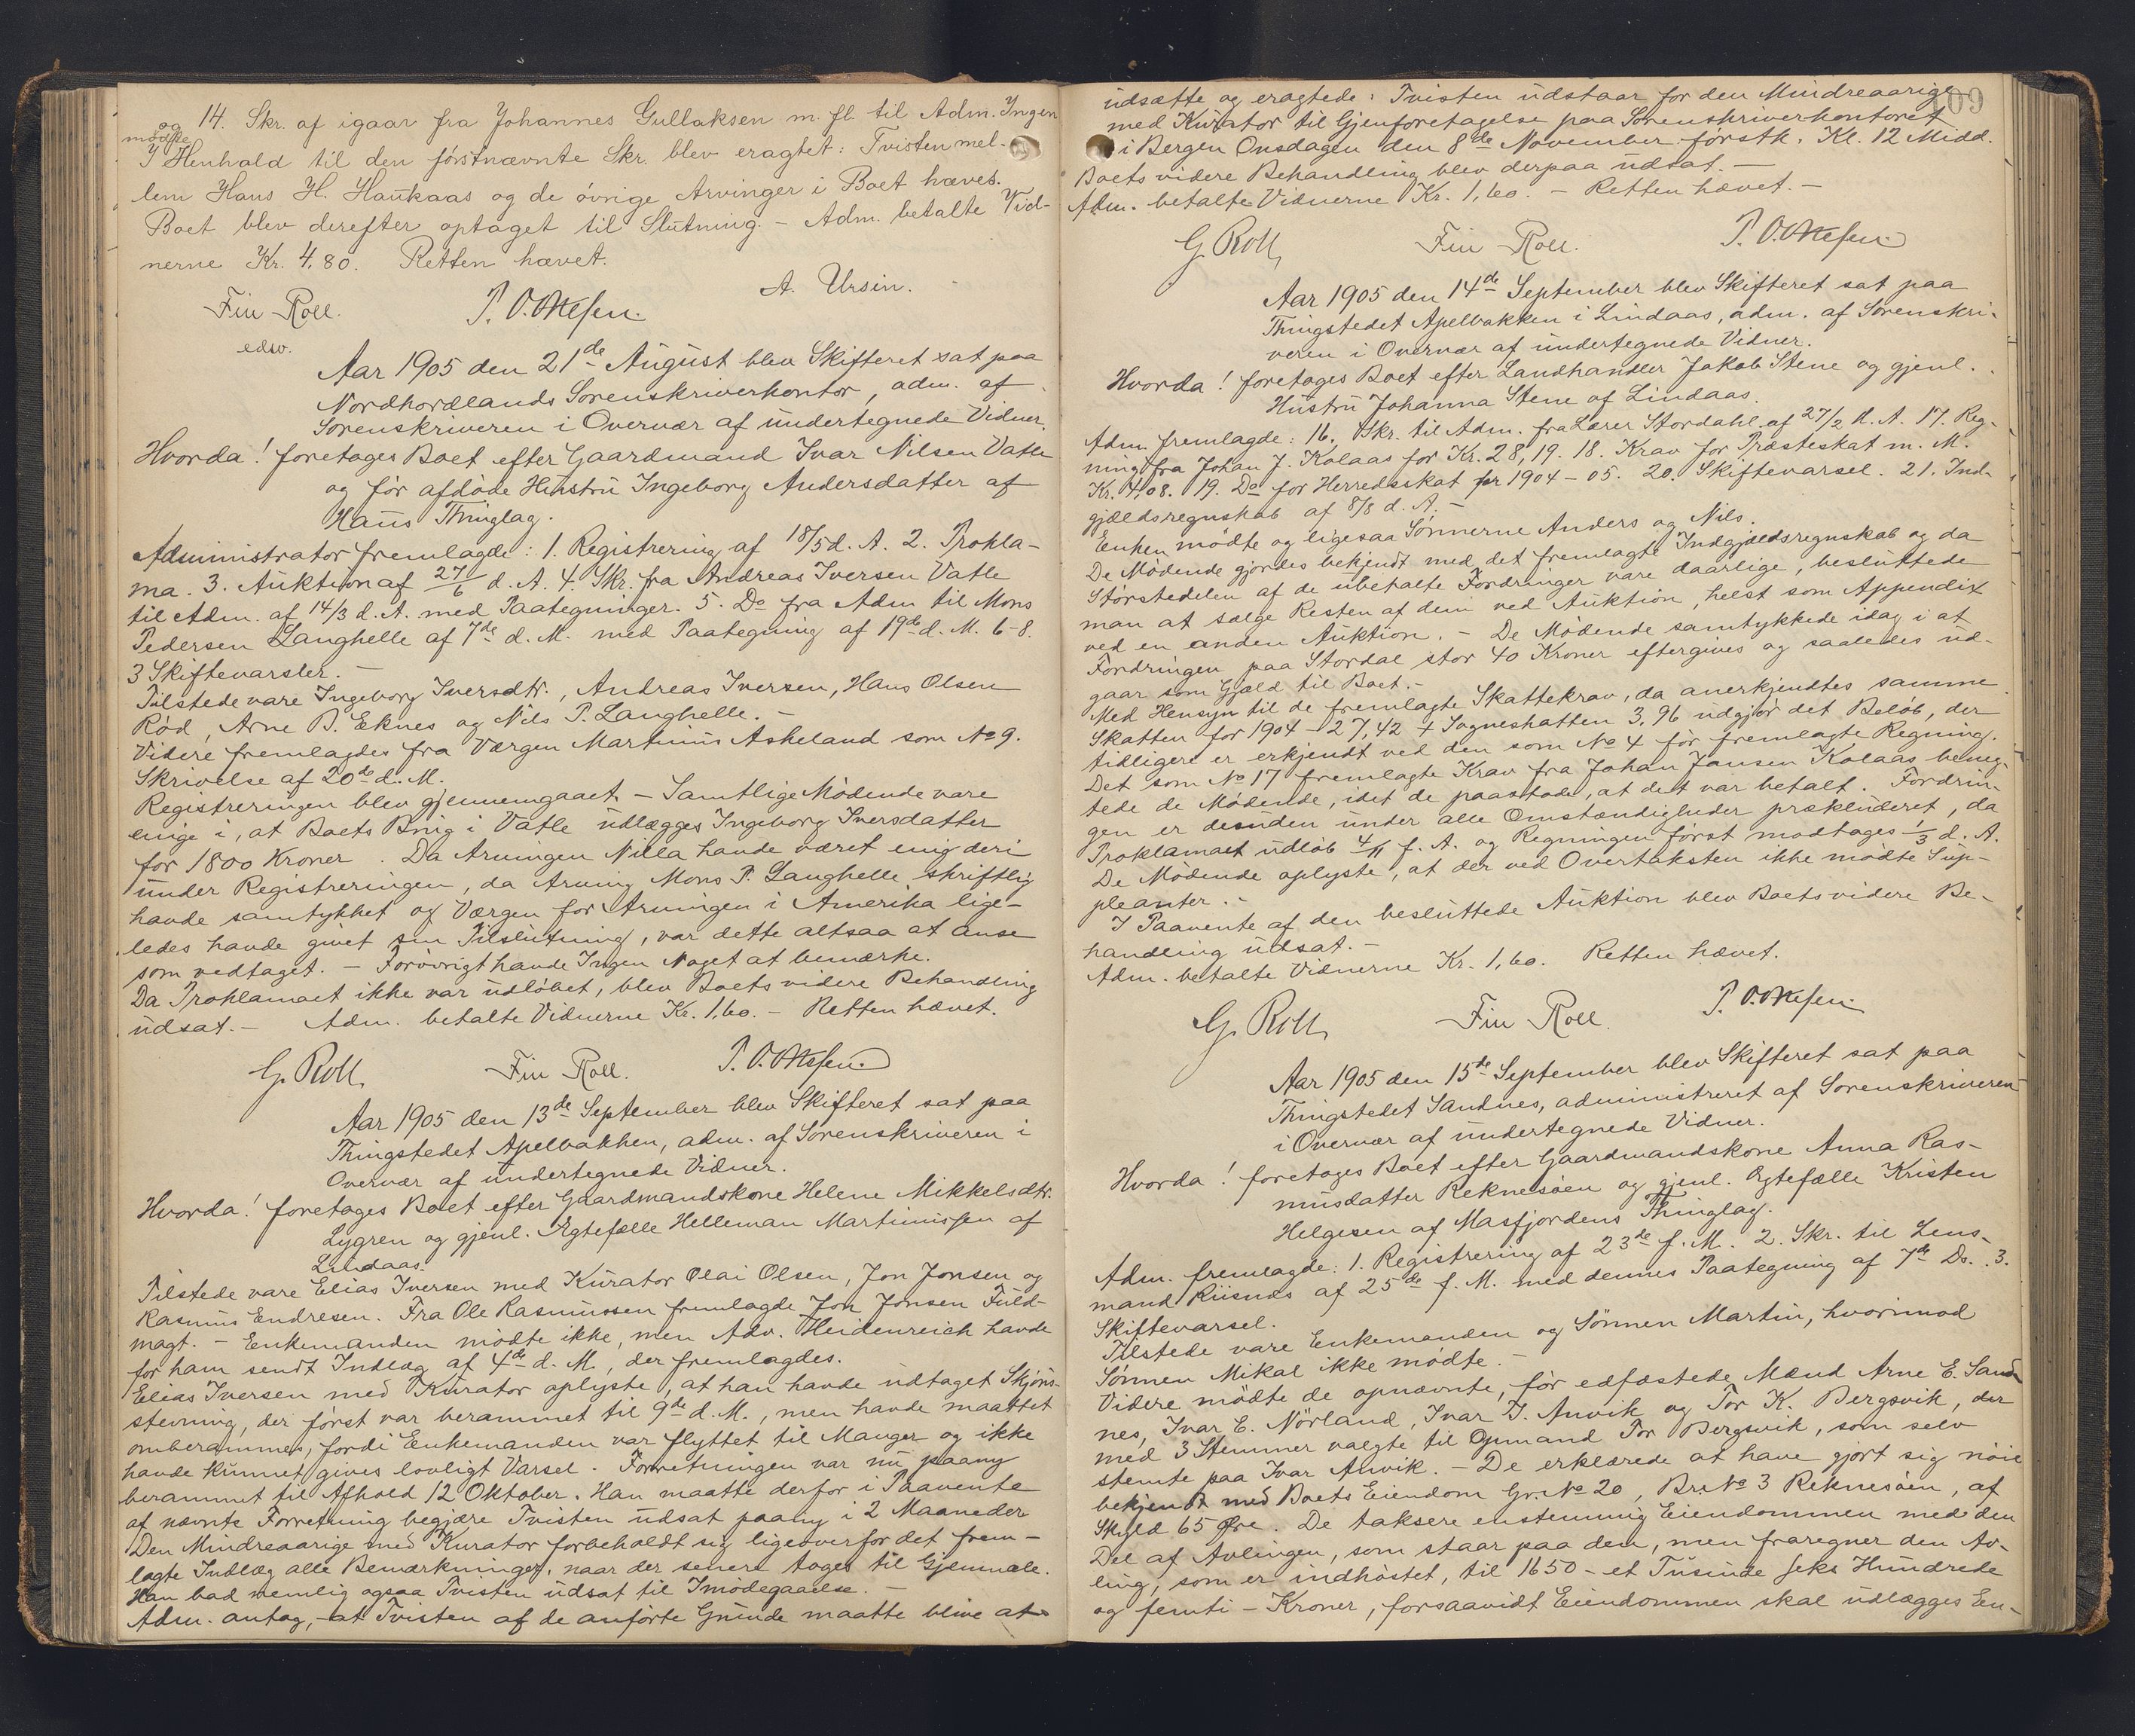 og 14. Skr. af igaar fra Johannes Gullaksen m. fl. til Adm. Ingen
mødte
I Henhold til den førstnævnte Skr. blev eragtet: Tvisten mel-
lem Hans H. Haukaas og de øvrige Arvinger i Boet hæves.
Boet blev derefter optaget til Slutning. - Adm. betalte Vid-
nerne Kr. 4.80. Retten hævet.
A. Ursin.
Fin Roll. P. O. Ottesen.
edsv.
Aar 1905 den 21de August blev Skifteret sat paa
Nordhordlands Sorenskriverkontor, adm. af
Sorenskriveren i Overvær af undertegnede Vidner.
Hvorda! foretages Boet efter Gaardmand Ivar Nilsen Vatle
og før afdøde Hustru Ingeborg Andersdatter af
Haus Thinglag.
Administrator fremlagde: 1. Registrering af 18/5 d. A. 2. Prokla-
ma. 3. Auktion af 27/6 d. A. 4. Skr. fra Andreas Iversen Vatle
til Adm. af 14/3 d. A. med Paategninger. 5. Do fra Adm til Mons
Pedersen Langhelle af 7de d. M. med Paategning af 19de d. M. 6-8.
3 Skiftevarsler. -
Tilstede vare Ingeborg Iversdtr., Andreas Iversen, Hans Olsen
Rød, Arne B. Eknes og Nils P. Langhelle. -
Videre fremlagdes fra Værgen Martinus Askeland som No 9.
Skrivelse af 20de d. M.
Registreringen blev gjennemgaaet. - Samtlige Mødende vare
enige i, at Boets Brug i Vatle udlægges Ingeborg Iversdatter
for 1800 Kroner. Da Arvingen Nilla havde været enig deri
under Registreringen, da Arving Mons P. Langhelle skriftlig
havde samtykket og Værgen for Arvingen i Amerika lige-
ledes havde givet sin Tilslutning, var dette altsaa at anse
som vedtaget. - Forøvrigt havde Ingen Noget at bemærke.
Da Proklamaet ikke var udløbet, blev Boets videre Behandling
udsat. - Adm. betalte Vidnerne Kr. 1,60. - Retten hævet.
G. Roll. Fin Roll. P. O. Ottesen.
Aar 1905 den 13de September blev Skifteret sat paa
Thingstedet Apelbakken, adm. af Sorenskriveren i
Overvær af undertegnede Vidner.
Hvorda! foretages Boet efter Gaardmandskone Helene Mikkelsdtr.
Lygren og gjenl. Ægtefælle Helleman Martinussen af
Lindaas.
Tilstede vare Elias Iversen med Kurator Olai Olsen, Jon Jonsen og
Rasmus Endresen. Fra Ole Rasmussen fremlagde Jon Jonsen Fuld-
magt. - Enkemanden mødte ikke, men Adv. Heidenreich havde
for ham sendt Indlæg af 4de d. M., der fremlagdes.
Elias Iversen med Kurator oplyste, at han havde udtaget Skjøns-
stevning, der først var berammet til 9de d. M., men havde maattet
omberammes, fordi Enkemanden var flyttet til Manger og ikke
havde kunnet gives lovligt Varsel. Forretningen var nu paany
berammet til Afhold 12 Oktober. Han maatte derfor i Paavente
af nævnte Forretning begjære Tvisten udsat paany i 2 Maaneder
Den Mindreaarige med Kurator forbeholdt sig ligeoverfor det frem-
lagte Indlæg alle Bemærkninger, naar der senere toges til Gjenmæle.
Han bad nemlig ogsaa Tvisten udsat til Imødegaaelse. -
Adm. antog, - at Tvisten af de anførte Grunde maatte blive at
109
udsætte og eragtede: Tvisten udstaar for den Mindreaarige
med Kurator til Gjenforetagelse paa Sorenskriverkontoret
i Bergen Onsdagen den 8de November førstk. Kl. 12 Midd.
Boets videre Behandling blev derpaa udsat. -
Adm. betalte Vidnerne Kr. 1,60. - Retten hævet. -
G. Roll, Fin Roll. P. O. Ottesen.
Aar 1905 den 14de September blev Skifteret sat paa
Thingstedet Apelbakken i Lindaas, adm. af Sorenskri-
veren i Overvær af undertegnede Vidner.
Hvorda! foretages Boet efter Landhandler Jakob Stene og gjenl.
Hustru Johanna Stene af Lindaas.
Adm. fremlagde: 16. Skr. til Adm. fra Lærer Stordahl af 27/2 d. A. 17. Reg-
ning fra Johan J. Kolaas for Kr. 28,19. 18. Krav for Præsteskat m. M.
Kr. 4,08. 19. Do for Herredsskat pr 1904 - 05. 20. Skiftevarsel. 21. Ind-
gjældsregnskab af 8/8 d. A. -
Enken mødte og ligesaa Sønnerne Anders og Nils.
De Mødende gjordes bekjendt med det fremlagte Indgjældsregnskab og da
Størstedelen af de ubetalte Fordringer vare daarlige, besluttede
man at sælge Resten af dem ved Auktion, helst som Appendix
ved en anden Auktion. - De Mødende samtykkede idag i at
Fordringen paa Stordal stor 40 Kroner eftergives og saaledes ud-
gaar som Gjæld til Boet. -
Med Hensyn til de fremlagte Skattekrav, da anerkjendtes samme.
Skatten for 1904 - 27,42 + Sogneskatten 3,96 udgjør det Beløb, der
tidligere er erkjendt ved den som No 4 før fremlagte Regning.
Det som No 17 fremlagte Krav fra Johan Jansen Kolaas beneg-
tede de Mødende, idet de paastode, at det var betalt. Fordrin-
gen er desuden under alle Omstændigheder prækluderet, da
Proklamaet udløb 4/11 f. A. og Regningen først modtages 1/3 d. A.
De Mødende oplyste, at der ved Overtaksten ikke mødte Sup-
pleanter. -
I Paavente af den besluttede Auktion blev Boets videre Be-
handling udsat. -
Adm. betalte Vidnerne Kr. 1,60. Retten hævet.
G. Roll, Fin Roll. P. O. Ottesen.
Aar 1905 den 15de September blev Skifteret sat paa
Thingstedet Sandnes, administreret af Sorenskriveren
i Overvær af undertegnede Vidner.
Hvorda! foretages Boet efter Gaardmandskone Anna Ras-
musdatter Reknesøen og gjenl. Ægtefælle Kristen
Helgesen af Masfjordens Thinglag.
Adm. fremlagde: 1. Registrering af 23de f. M. 2. Skr. til Lens-
mand Riisnes af 25de f. M. med dennes Paategning af 7de Ds. 3.
Skiftevarsel.
Tilstede vare Enkemanden og Sønnen Martin, hvorimod
Sønnen Mikal ikke mødte. -
Videre mødte de opnævnte, før edfæstede Mænd Arne E. Sand-
nes, Ivar E. Nørland, Ivar I. Anvik og Tor K. Bergsvik, der
med 3 Stemmer valgte til Opmand Tor Bergsvik, som selv
stemte paa Ivar Anvik. - De erklærede at have gjort sig nøie
bekjendt med Boets Eiendom Gr. No 20, Br. No 3 Reknesøen, af
Skyld 65 Øre. De taksere enstemmig Eiendommen med den
Del af Avlingen, som staar paa den, men fraregner den Av-
ling, som er indhøstet, til 1650 - et Tusinde seks Hundrede
og femti - Kroner, forsaavidt Eiendommen skal udlægges En-